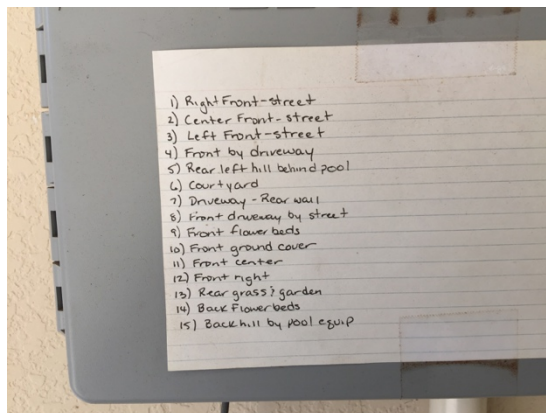 1) Right Front-street
2) Center Front-street
3) Left Front-street
4) Front by driveway
5) Rear left hill behind pool
6) Courtyard
7) Driveway - Rear wall
8) Front driveway by street
9) Front flower beds
10) Front ground cover
11) Front center
12) Front right
13) Rear grass & garden
14) Back Flower beds
15) Back hill by pool equip